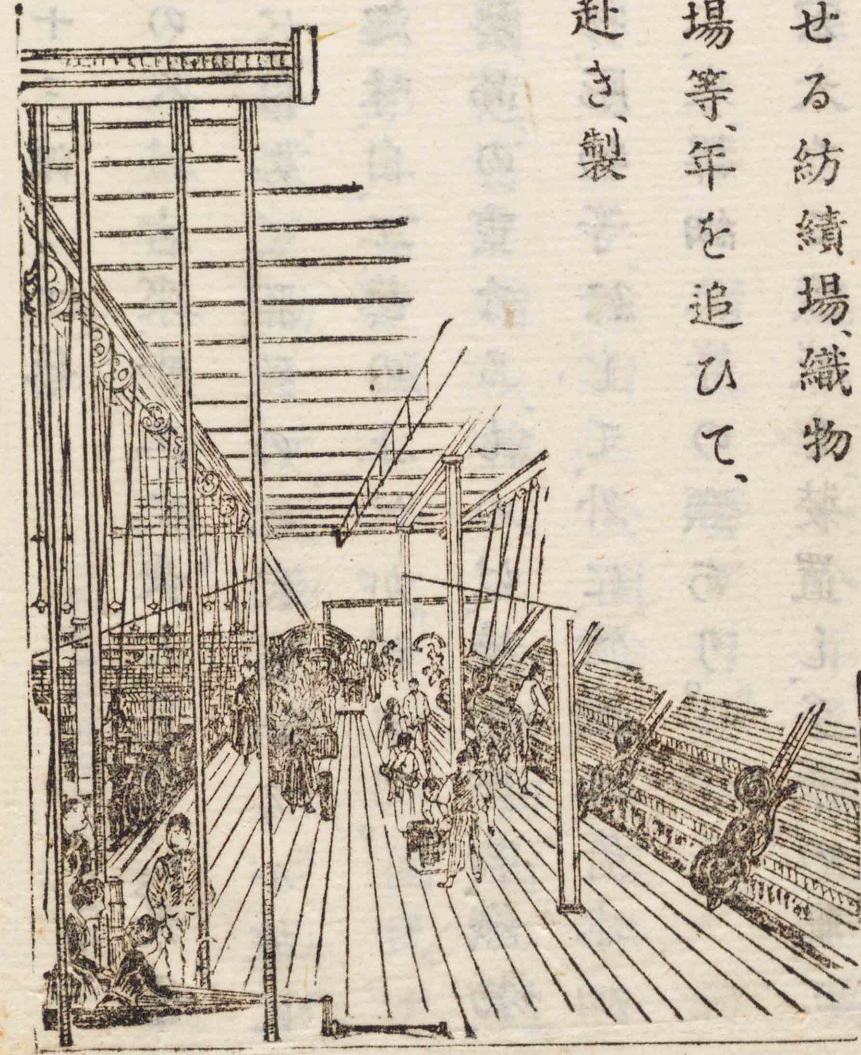 せる紡績場、織物
場等、年を追ひて、
赴き、製